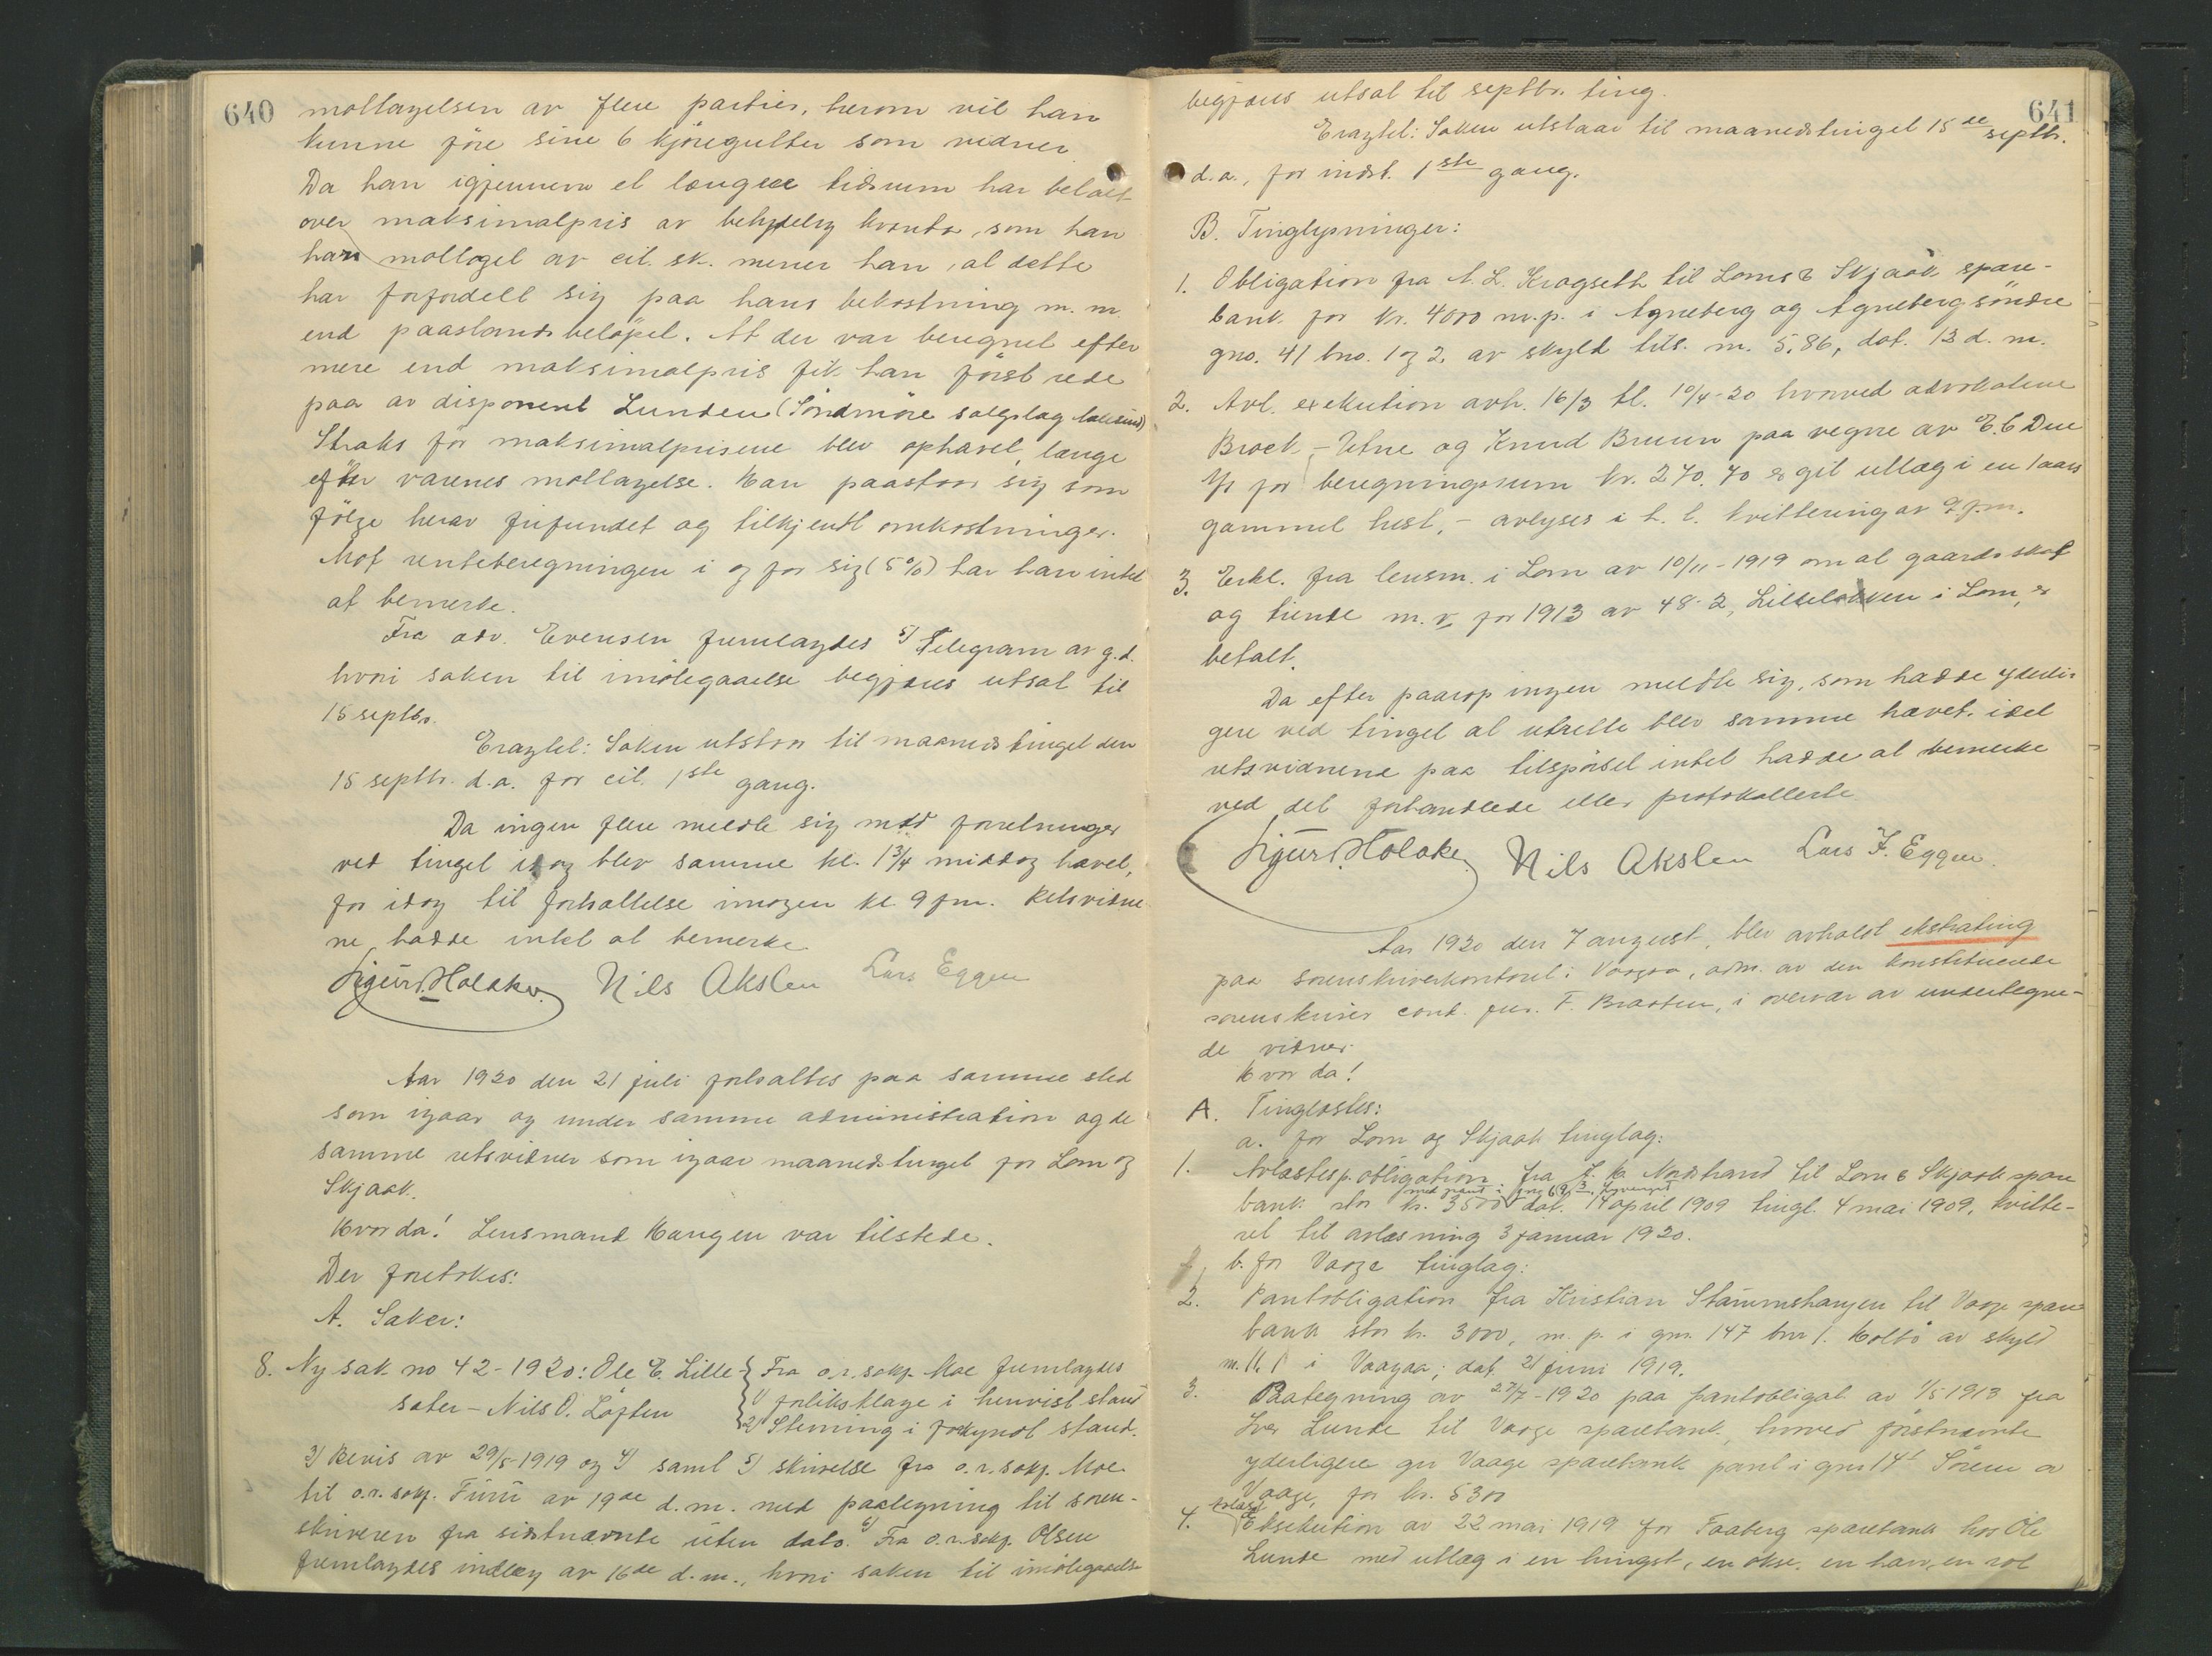 640
mottagelsen av flere partier, herom vil han
kunne føre sine 6 kjøregutter som vidner
Da han igjennem et længere tidsrum har betalt
over maksimalpris av betydelig kvanta, som han
har mottaget av cit. sk. mener han, at dette
har forfordelt sig paa hans bekostning m. m.
end paastandsbeløpet. At der var beregnet efter
mere end maksimalpris fik han først rede
paa av disponent Lunden (Söndmöre salgslag Aalesund)
Straks før maksimalprisene blev ophævet, længe
efter varenes mottagelse. Han paastaar sig som
følge herav frifundet og tilkjendt omkostninger.
Mot renteberegningen i og for sig (5%) har han intet
at bemerke.
Fra adv. Evensen fremlagdes 5) Telegram av g.d.
hvori saken til imøtegaaelse begjæres utsat til
15 septbr.
Eragtet: Saken utstaar til maanedstinget den
15 septbr. d.a. for cit. 1ste gang.
Da ingen flere meldte sig med forretninger
ved tinget idag blev samme kl. 1¾ middag hævet,
for idag til fortsættelse imorgen kl 9 fm. Retsvidne-
ne hadde intet at bemerke
Sigurd Holaker Nils Akslen Lars Eggen
Aar 1920 den 21 juli fortsattes paa samme sted
som igaar og under samme administration og de
samme retsvidner som igaar maanedstinget for Lom og
Skjaak.
Hvorda! Lensmand Haugen var tilstede.
Der foretokes:
A. Saker:
8. Ny sak no 42-1920: Ole E. Lille- Fra o.r.sakf. Moe fremlagdes
sæter - Nils O. Løften 1) forliksklage i henvist stand
2) Stevning i forkyndt stand.
3) Bevis av 29/5-1919 og 4) samt 5) skrivelse fra o.r.sakf. Moe
til o.r.sakf. Furu av 19de d.m. med paategning til soren-
skriveren fra sidstnævnte uten dato. 6) Fra o.r.sakf. Olsen
fremlagdes indlæg av 16de d.m., hvori saken til imøtegaaelse
641
begjæres utsat til septbr. ting.
Eragtet: Saken utstaar til maanedstinget 15de septbr.
d.a., for indst. 1ste gang.
B. Tinglysninger:
1. Obligation fra A. L. Kragseth til Lom & Skjaak spare-
bank for kr. 4000 m.p. i Agneberg og Agneberg søndre
gno. 41 bno. 1 og 2. av skyld tils. m. 5,86, dat. 13 d. m.
2. Avl. exekution avh. 16/3 tl. 10/4-20 hvorved advokatene
Brock-Utne og Knud Bruun paa vegne av E. C Due
A/s for beregningssum kr. 270.70 er git utlæg i en 1 aars
gammel hest, - avlyses i h. t. kvittering av
3. Erkl. fra lensm. i Lom av 10/11-1919 om at gaardsskat
og tiende m. v for 1913 av 48-2, Lilleløkken i Lom, er
betalt.
Da efter paarop ingen meldte sig, som hadde yderli-
gere ved tinget at utrette blev samme hævet. idet
retsvidnene paa tilspørsel intet hadde at bemerke
ved det forhandlede eller protokollerte
Sigurd Holaker Nils Akslen Lars F. Eggen.
Aar 1920 den 7 august, blev avholdt ekstrating
paa sorenskriverkontoret i Vaagaa, adm. av den konstituerede
sorenskriver cand. jur. F. Braaten, i overvær av undertegne-
de vidner.
Hvorda!
A. Tinglæstes:
a. for Lom og Skjaak tinglag:
1. Avlæstes p. obligation fra J. H. Nordstrand til Lom & Skjaak spare
med pant i gno 69
bank stor kr. 3500 dat. 14 april 1909 tingl. 4 mai 1909, kvitte-
ret til avlæsning 3 januar 1920.
b. for Vaage tinglag:
2. Pantobligation fra Kristian Stammshaugen til Vaage spare
bank stor kr. 3000, m. p. i gnr. 147 bnr 1. Holbø av skyld
m. i Vaagaa; dat. 21 juni 1919.
3. Paategning av 27/7-1920 paa pantobligat. av 1/5 1913 fra
Iver Lunde til Vaage sparebank, hvorved førstnævnte
yderligere gir Vaage sparebank pant i gnr 14 i
Vaage, for kr. 5300
4. avlæst
Eksekution av 22 mai 1919 for Faaberg sparebank hos Ole
Lunde med utlæg i en hingst, en okse, en harv, en